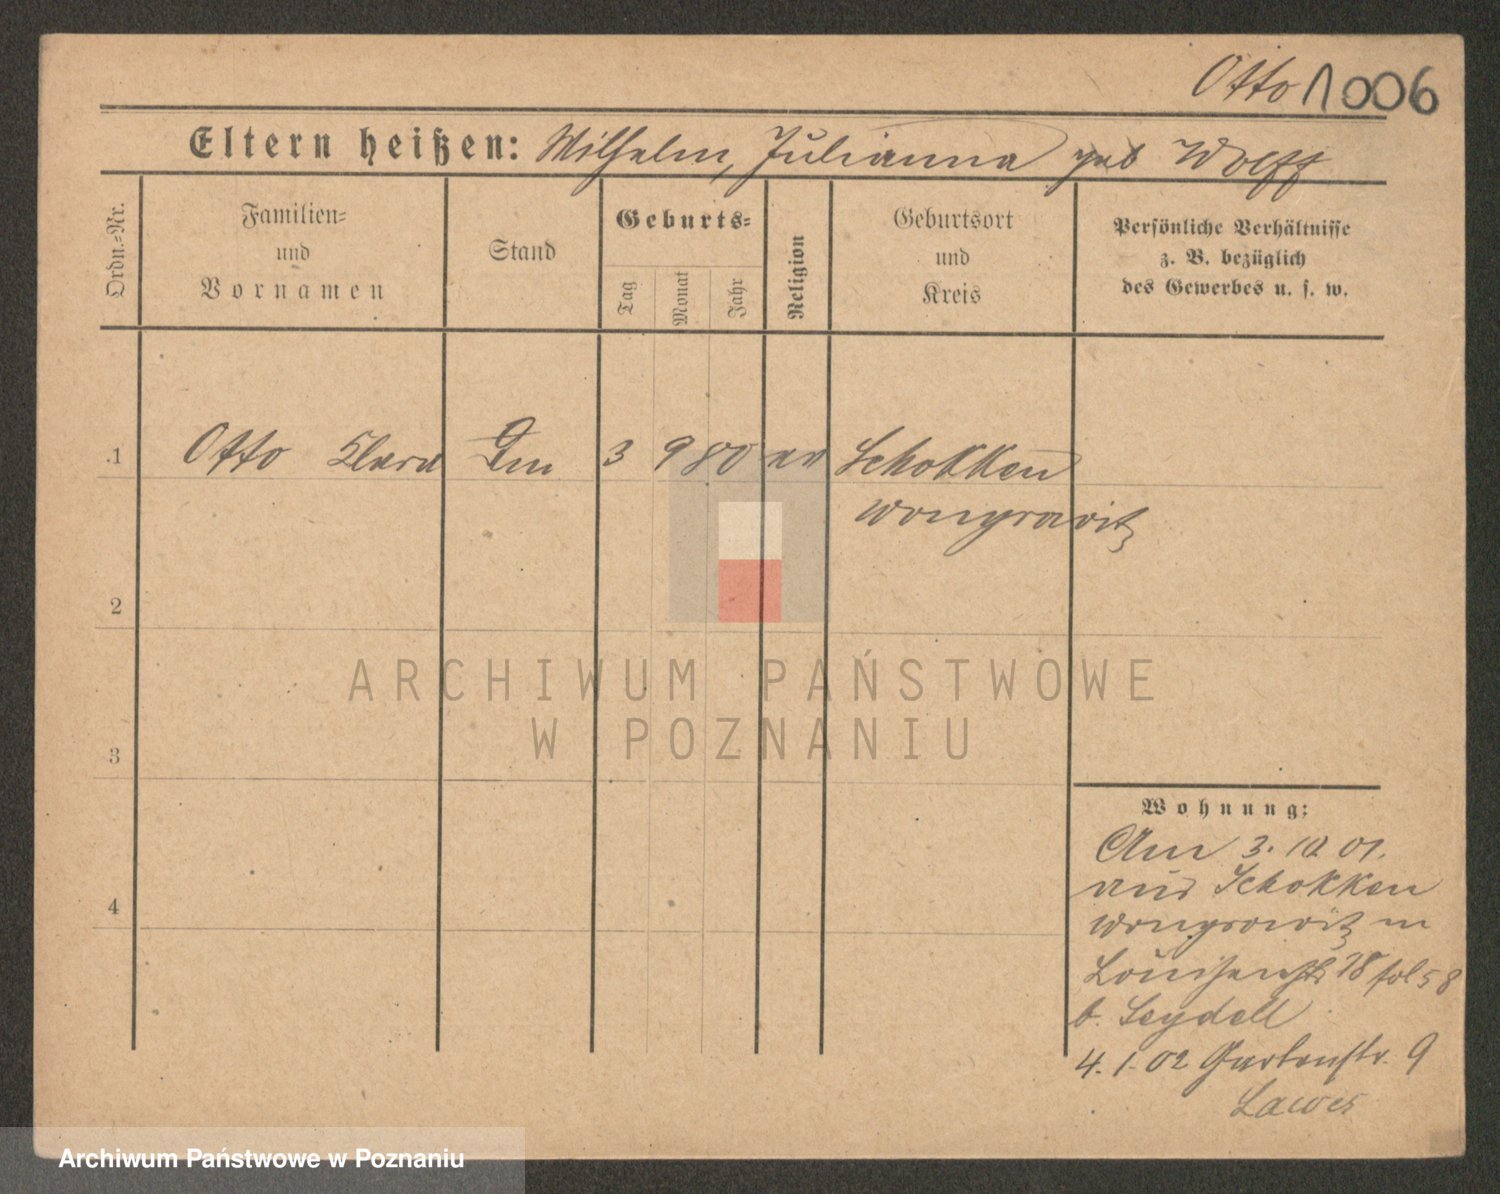 Otto 1006
Eltern heißen: Wilhelm, Julianna geb Wolff
Ordn.=Nr.
Familien=
und
Vornamen
Stand
Geburts=
Tag
Monat
Jahr
Religion
Geburtsort
und
Kreis
Persönliche Verhältnisse
z. B. bezüglich
des Gewerbes u. s. w.
1 Otto Clara 3 9 80 ev Schokken
Wongrowitz
2
ARCHIWUM PAŃSTWOWE
W POZNANIU
3
Wohnung:
Am 3. 10 01.
aus Schokken
Wongrowitz in
Louisenstr 18 fol 58
b. Seydell
4
4. 1. 02 Gartenstr. 9
Archiwum Państwowe w Poznaniu